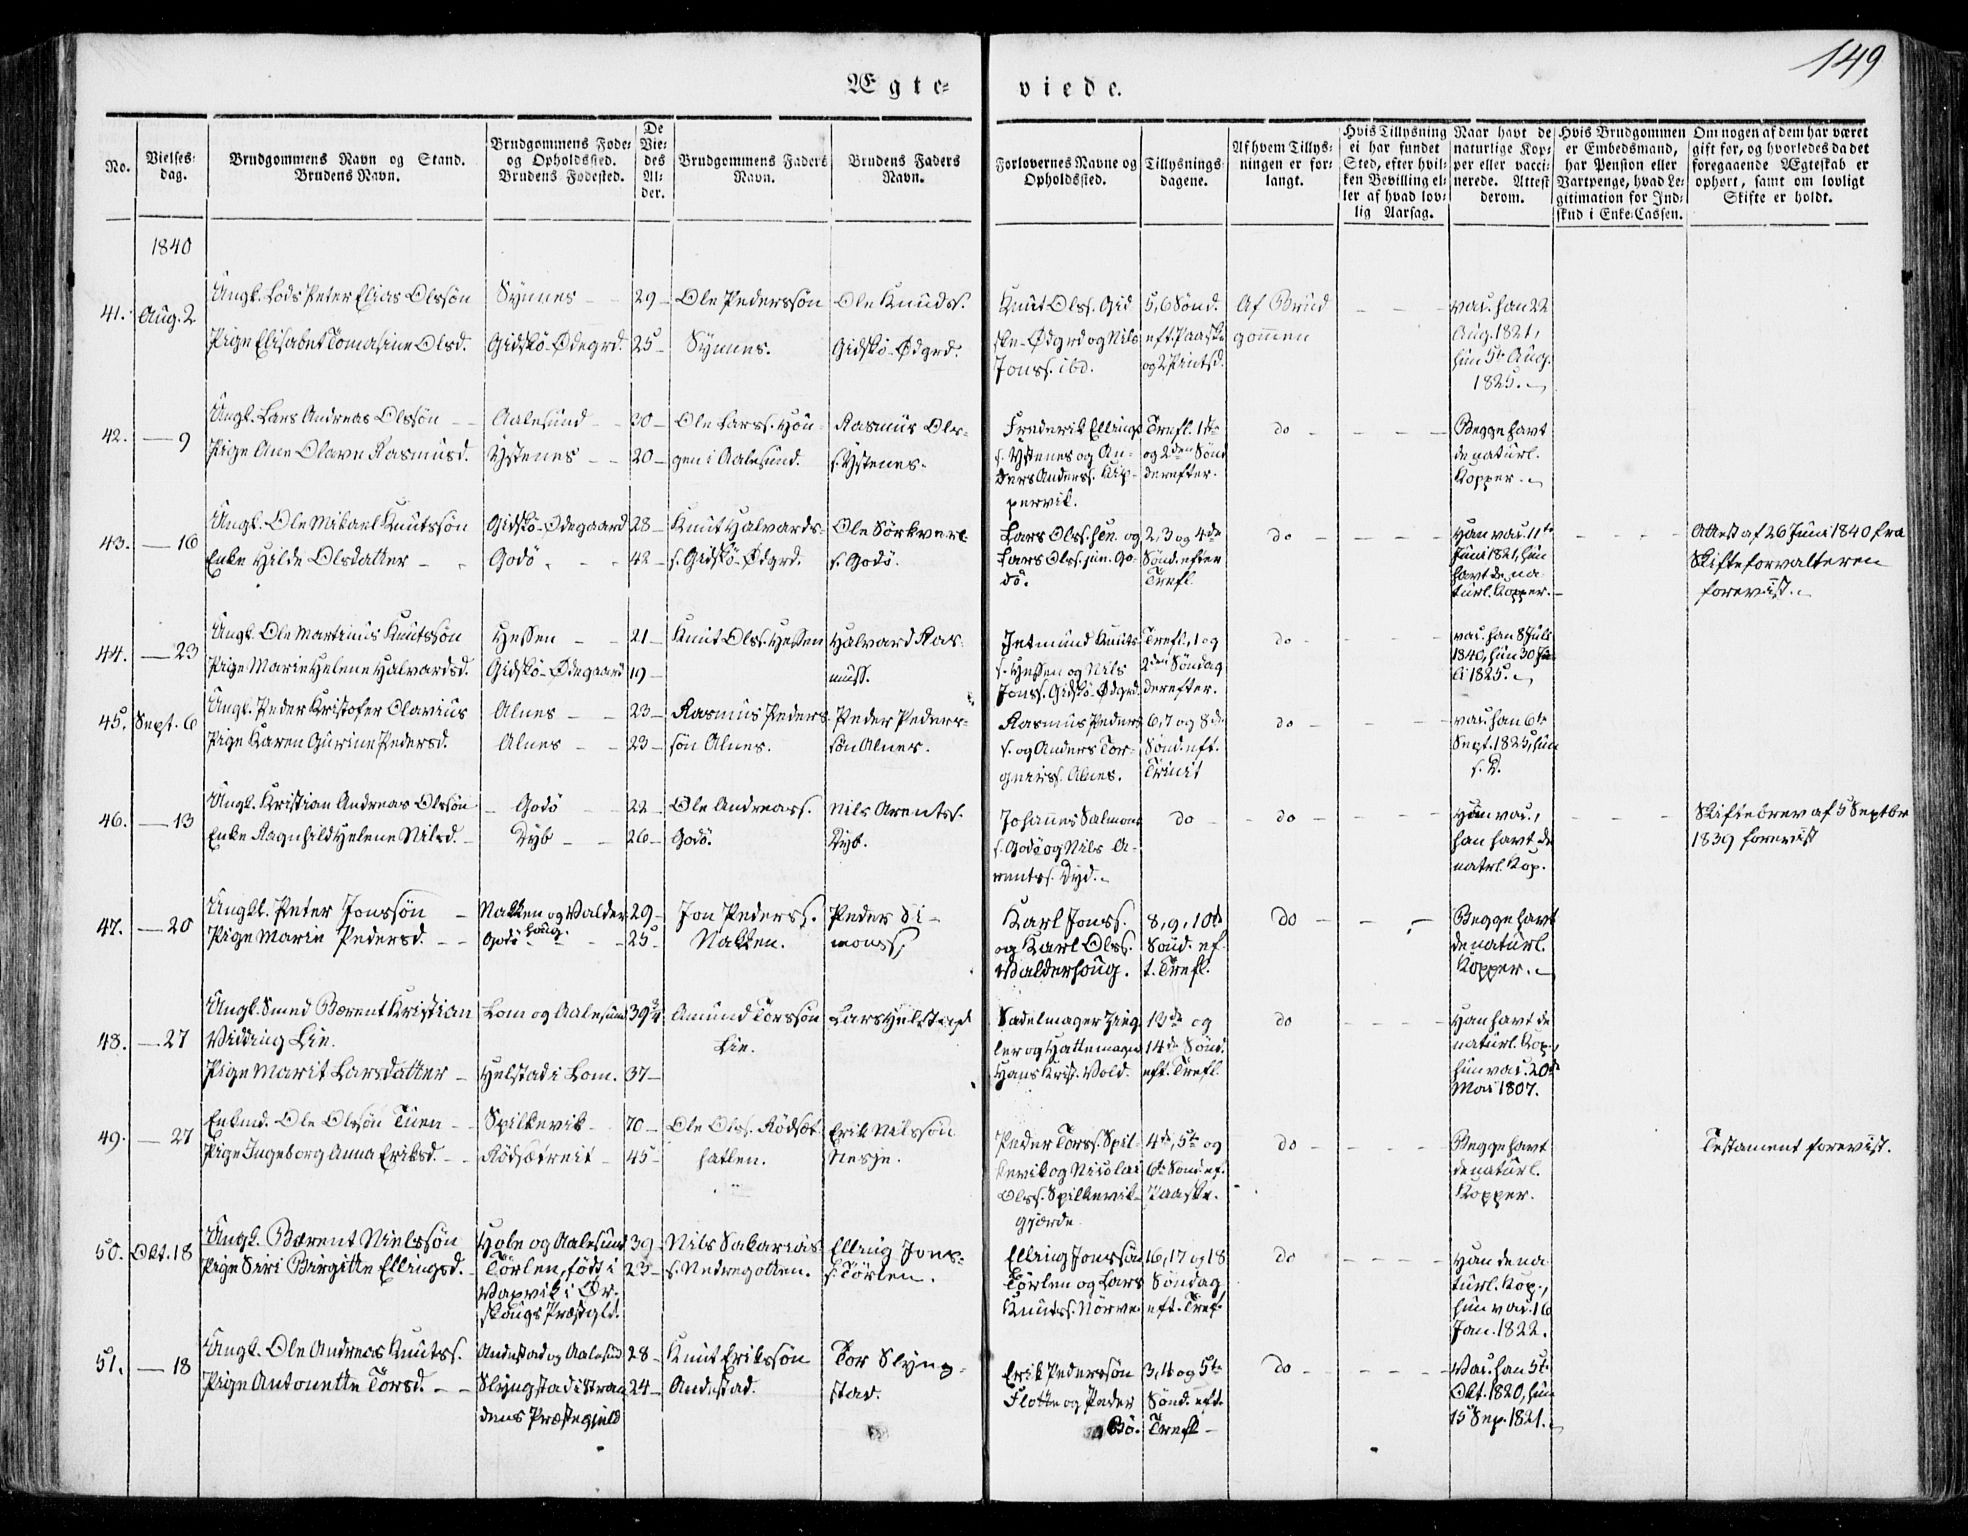 149
Ægte-
viede.
No.
Vielses-
dag.
Brudgommens Navn og Stand.
Brudens Navn.
Brudgommens Føde-
og Opholdssted.
Brudens Fødested.
De
Vie-
des
Al-
der.
Brudgommens Faders
Navn.
Brudens Faders
Navn.
Forlovernes Navne og
Opholdssted.
Tillysnings-
dagene.
Af hvem Tillys-
ningen er for-
langt.
Hvis Tillysning
ei har fundet
Sted, efter hvil-
ken Bevilling el-
ler af hvad lov-
lig Aarsag.
Naar havt de
naturlige Kop-
per eller vacci-
nerede. Attest
derom.
Hvis Brudgommen
er Embedsmand,
har Pension eller
Vartpenge, hvad Le-
gitimation for Ind-
skud i Enke-Cassen.
Om nogen af dem har været
gift før, og hvorledes da det
foregaaende Ægteskab er
ophørt, samt om lovligt
Skifte er holdt.
1840
41. Aug. 2
Ungk. Lods Peter Elias Olssøn
Pige Elisabet Tomasine Olsd.
Synnes
Gidskö-Ödegrd.
29
25
Ole Pederssön
Synnes.
Ole Knudss.
Gidskö-Ödgrd.
Knut Olss. Gid
ske-Ödgrd og Nils
Jonss. ibd.
5, 6 Sönd.
eft. Paaske
og 2 Pintsd.
Af Brud
gommen
vac. han 22
Aug. 1821,
hun 5te Aug.
1825.
42. — 9
Ungk. Lars Andreas Olssön
Pige Ane Olave Rasmusd.
Aalesund
Ystenes
30
20
Ole Larss. Hön
gen i Aalesund.
Rasmus Ole-
s. Ystenes.
Frederik Ellings
s. Ystenes og An-
ders Anderss. Kip-
pervik.
Trefl. 1te
og 2den Sönd
derefter.
do
Begge havt
de naturl.
Kopper.
43. — 16
Ungk. Ole Mikael Knutssön
Enke Hilde Olsdatter
Gidskö-Ödegaard
Godö
28
42
Knut Halvards-
s. Gidskö-Ödgrd.
Ole Sörkverl-
s. Godö.
Lars Olss. sen. og
Lars Olss. jun. Go-
dö.
2, 3 og 4de
Sönd. efter
Trefl.
do
Han vac. 11te
Juni 1821, hun
havt de na-
turl. Kopper.
Attest af 26 Juni 1840 fra
Skifteforvalteren
forevist.
44. — 23
Ungk. Ole Martinus Knutssön
Pige Marie Helene Halvardsd.
Hessen
Gidskö-Ödegaard
21
19
Knut Olss. Hessen
Halvard Ras-
muss.
Jetmund Knuts-
s. Hessen og Nils
Jonss. Gidskö-Ödgrd.
Trefl., 1 og
2den Söndag
derefter.
do
vac. han 8 Juli
1840, hun 30 Ju-
li 1825.
45. Sept. 6
Ungk. Peder Kristofer Olavius
Pige Karen Gurine Pedersd.
Alnes
Alnes
23
23
Rasmus Peders
sön Alnes.
Peder Peders-
sön Alnes.
Rasmus Peders
s. og Anders Tor-
geirs. Alnes.
6, 7 og 8de
Sönd. eft.
Trinit
do
vac. han 6te
Sept. 1825, hun
s. D.
46. — 13
Ungk. Kristian Andreas Olssön
Enke Ragnhild Helene Nilsd.
Godö
Dyb
22
26
Ole Andreass.
Godö.
Nils Arentss.
Dyb.
Johannes Salmons
s. Godö og Nils A-
rentss. Dyb.
do
do
Hun vac.,
han havt de
natrl. Kop.
Skiftebrev af 5 Septbr
1839 forevist
47. — 20
Ungk. Peter Jonssön
Pige Marie Pedersd.
Nakken og Valder
houg.
Godö
29
25
Jon Pederss.
Nakken.
Peder Si-
monss.
Karl Jonss.
og Karl Olss.
Valderhoug.
8, 9, 10de
Sönd. ef-
t. Trefl.
do
Begge havt
de naturl.
Kopper.
48. — 27
Ungk. Smed Bærent Kristian
Vidding Lie.
Pige Marit Larsdatter
Lom og Aalesund
Helstad i Lom.
39¾
37
Amund Torssön
Lie.
Lars Helstad
Sadelmager Zieg
ler og Hattemager
Hans Krist. Vold.
13de og
14de Sönd.
eft. Trefl.
do
Han havt de
naturl. Kop.,
hun vac. 20de
Mai 1807.
49. — 27
Enkmd. Ole Olssön Tuen
Pige Ingeborg Anna Eriksd.
Spilkevik
Rödsætreit
70
45
Ole Olss. Rödsæt
hatlen.
Erik Nilssön
Nesje.
Peder Torss. Spil-
kevik og Nicolai
Olss. Spilkevik-
gjærde.
4de, 5te og
6te Sönd. ef.
Paaske.
do
Begge havt
de naturl.
Kopper.
Testament forevist.
50. Okt. 18
Ungk. Bærent Nielssön
Pige Siri Birgitte Ellingsd.
Hole og Aalesund
Törlen, födt i
Vaxvik i Ör-
skougs Præstgld.
39
23
Nils Sakarias-
s. Nedregotten.
Elling Jons-
s. Törlen.
Elling Jonssön
Törlen og Lars
Knutss. Nörve
16, 17 og 18
Söndag
eft. Tref.
do
Han de na-
turl. Kop.,
hun vac. 16
Jan. 1822.
51. — 18
Ungk. Ole Andreas Knutss.
Pige Antonette Torsd.
Andestad og Aalesund
Slyngstad i Stran
dens Præstegjeld
28
24
Knut Erikssön
Andestad.
Tor Slyng-
stad.
Erik Pederssön
Flotte og Peder
Bö.
3, 4 og 5te
Sönd. eft.
Trefl
do
Vac. han 5te
Okt. 1820, hun
15 Sep. 1821.